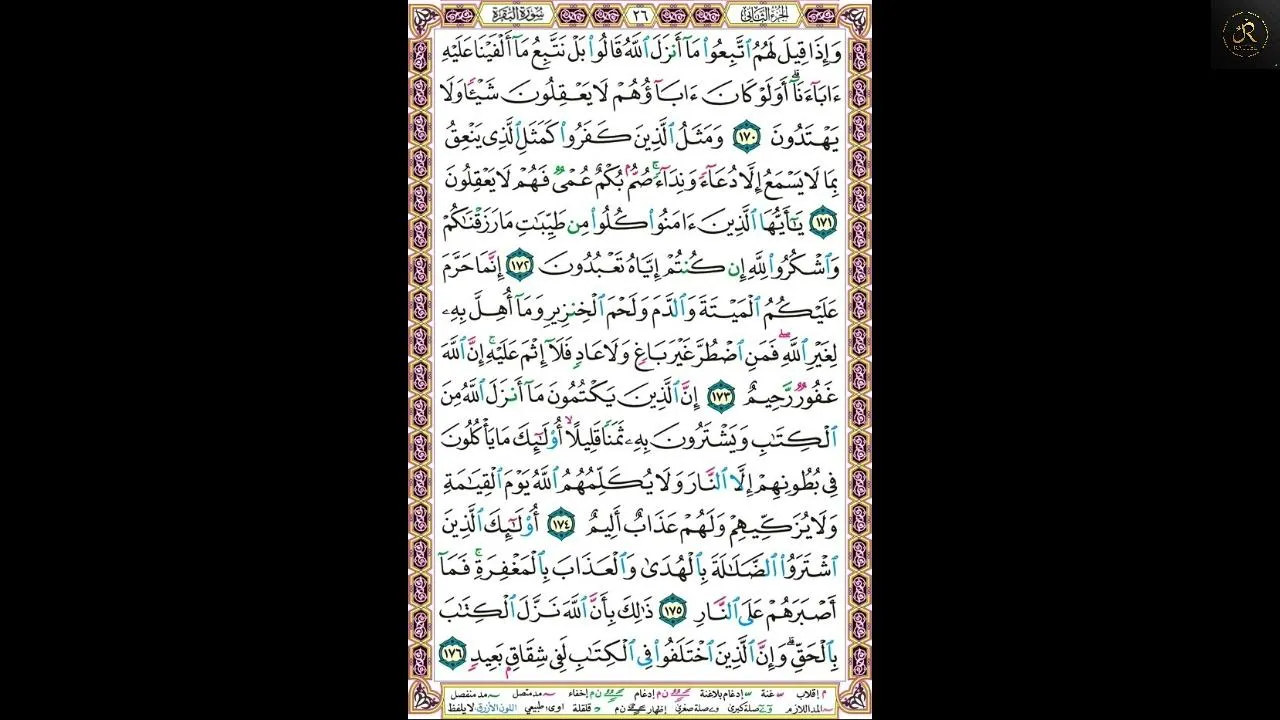 سُورَةُ البَقَرَةِ ٢٦ الجُزْءُ الثَّانِي
وَإِذَا قِيلَ لَهُمُ ٱتَّبِعُوا۟ مَآ أَنزَلَ ٱللَّهُ قَالُوا۟ بَلْ نَتَّبِعُ مَآ أَلْفَيْنَا عَلَيْهِ
ءَابَآءَنَآ ۗ أَوَلَوْ كَانَ ءَابَآؤُهُمْ لَا يَعْقِلُونَ شَيْـًٔا وَلَا
يَهْتَدُونَ ١٧٠ وَمَثَلُ ٱلَّذِينَ كَفَرُوا۟ كَمَثَلِ ٱلَّذِى يَنْعِقُ
بِمَا لَا يَسْمَعُ إِلَّا دُعَآءً وَنِدَآءً ۚ صُمٌّۢ بُكْمٌ عُمْىٌ فَهُمْ لَا يَعْقِلُونَ
١٧١ يَـٰٓأَيُّهَا ٱلَّذِينَ ءَامَنُوا۟ كُلُوا۟ مِن طَيِّبَـٰتِ مَا رَزَقْنَـٰكُمْ
وَٱشْكُرُوا۟ لِلَّهِ إِن كُنتُمْ إِيَّاهُ تَعْبُدُونَ ١٧٢ إِنَّمَا حَرَّمَ
عَلَيْكُمُ ٱلْمَيْتَةَ وَٱلدَّمَ وَلَحْمَ ٱلْخِنزِيرِ وَمَآ أُهِلَّ بِهِۦ
لِغَيْرِ ٱللَّهِ ۖ فَمَنِ ٱضْطُرَّ غَيْرَ بَاغٍ وَلَا عَادٍ فَلَآ إِثْمَ عَلَيْهِ ۚ إِنَّ ٱللَّهَ
غَفُورٌ رَّحِيمٌ ١٧٣ إِنَّ ٱلَّذِينَ يَكْتُمُونَ مَآ أَنزَلَ ٱللَّهُ مِنَ
ٱلْكِتَـٰبِ وَيَشْتَرُونَ بِهِۦ ثَمَنًا قَلِيلًا ۙ أُو۟لَـٰٓئِكَ مَا يَأْكُلُونَ
فِى بُطُونِهِمْ إِلَّا ٱلنَّارَ وَلَا يُكَلِّمُهُمُ ٱللَّهُ يَوْمَ ٱلْقِيَـٰمَةِ
وَلَا يُزَكِّيهِمْ وَلَهُمْ عَذَابٌ أَلِيمٌ ١٧٤ أُو۟لَـٰٓئِكَ ٱلَّذِينَ
ٱشْتَرَوُا۟ ٱلضَّلَـٰلَةَ بِٱلْهُدَىٰ وَٱلْعَذَابَ بِٱلْمَغْفِرَةِ ۚ فَمَآ
أَصْبَرَهُمْ عَلَى ٱلنَّارِ ١٧٥ ذَٰلِكَ بِأَنَّ ٱللَّهَ نَزَّلَ ٱلْكِتَـٰبَ
بِٱلْحَقِّ ۗ وَإِنَّ ٱلَّذِينَ ٱخْتَلَفُوا۟ فِى ٱلْكِتَـٰبِ لَفِى شِقَاقٍۭ بَعِيدٍ ١٧٦
م إقلاب غنة إدغام بلاغنة ن م إدغام ن م إخفاء مد متصل مد منفصل
المد اللازم صلة كبرى صلة صغرى إظهار ن م قلقلة اوى: طبيعي اللون الأزرق لا يلفظ